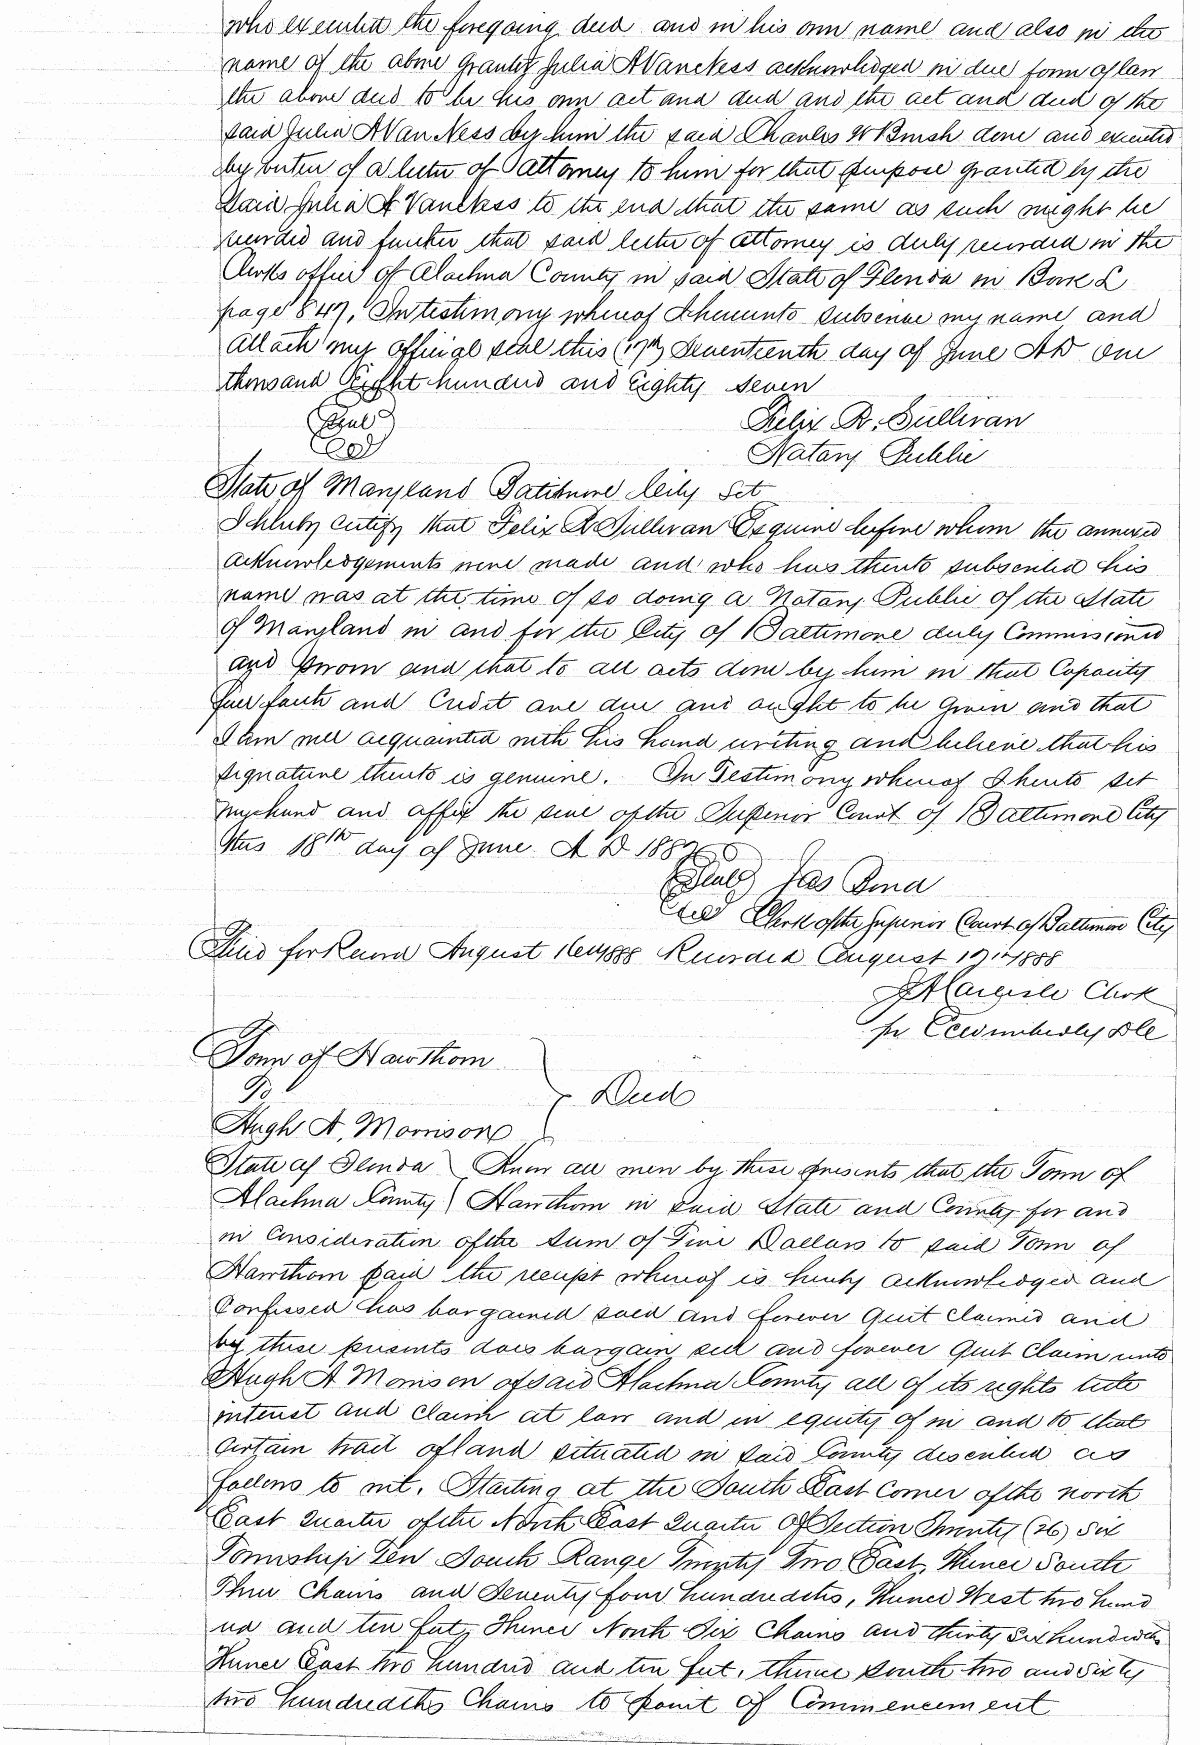 who executed the foregoing deed and in his own name and also in the
name of the above grantor Julia A Van Ness acknowledged in due form of law
the above deed to be his own act and deed and the act and deed of the
said Julia A Van Ness by him the said Charles W Brush done and executed
by virtue of a letter of attorney to him for that purpose granted by the
said Julia A Van Ness to the end that the same as such might be
recorded and further that said letter of attorney is duly recorded in the
Clerks office of Alachua County in said State of Florida in Book L
page 847. In testimony whereof I hereunto subscribe my name and
attach my official seal this (17th) Seventeenth day of June A D One
thousand Eight hundred and Eighty seven
Seal
Felix R. Sullivan
Notary Public
State of Maryland Baltimore City Set
I hereby certify that Felix R Sullivan Esquire before whom the annexed
acknowledgements were made and who has thereto subscribed his
name was at the time of so doing a Notary Public of the State
of Maryland in and for the City of Baltimore duly Commissioned
and sworn and that to all acts done by him in that Capacity
full faith and Credit are due and ought to be given and that
I am well acquainted with his hand writing and believe that his
signature thereto is genuine. In Testimony whereof I hereto set
my hand and affix the seal of the Superior Court of Baltimore City
this 18th day of June A D 1887
Seal Jas Bond
Clerk of the Superior Court of Baltimore City
Filed for Record August 16th 1888 Recorded August 17th 1888
J A Carlisle Clerk
pr Wimberly D C
Town of Hawthorn
To
Deed
Hugh A, Morrison
State of Florida Know all men by these presents that the Town of
Alachua County Hawthorn in said State and County for and
in Consideration of the sum of Five Dollars to said Town of
Hawthorn paid the receipt whereof is hereby acknowledged and
Confessed has bargained sold and forever Quit Claimed and
by these presents does bargain sell and forever Quit Claim unto
Hugh A Morrison of said Alachua County all of its rights title
interest and claim at law and in equity of in and to that
Certain tract of land situated in said County described as
follows to wit. Starting at the South East Corner of the north
East Quarter of the North East Quarter of Section Twenty (26) Six
Township Ten South Range Twenty Two East, Thence South
Three Chains and Seventy four hundredths, Thence West two hund
red and ten feet, Thence North Six Chains and thirty six hundredths
Thence East two hundred and ten feet, thence south two and sixty
two hundredths Chains to point of Commencement